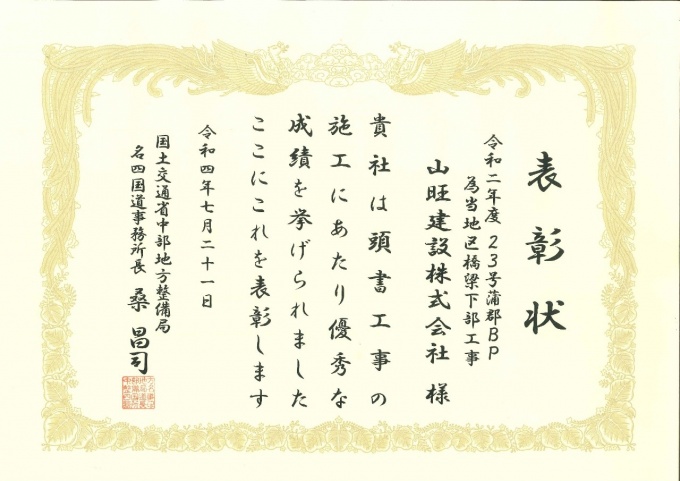 表彰状
令和二年度 23号蒲郡BP
為当地区橋梁下部工事
山旺建設株式会社 様
貴社は頭書工事の
施工にあたり優秀な
成績を挙げられました
ここにこれを表彰します
令和四年七月二十一日
国土交通省中部地方整備局
名四国道事務所長 桑 昌司